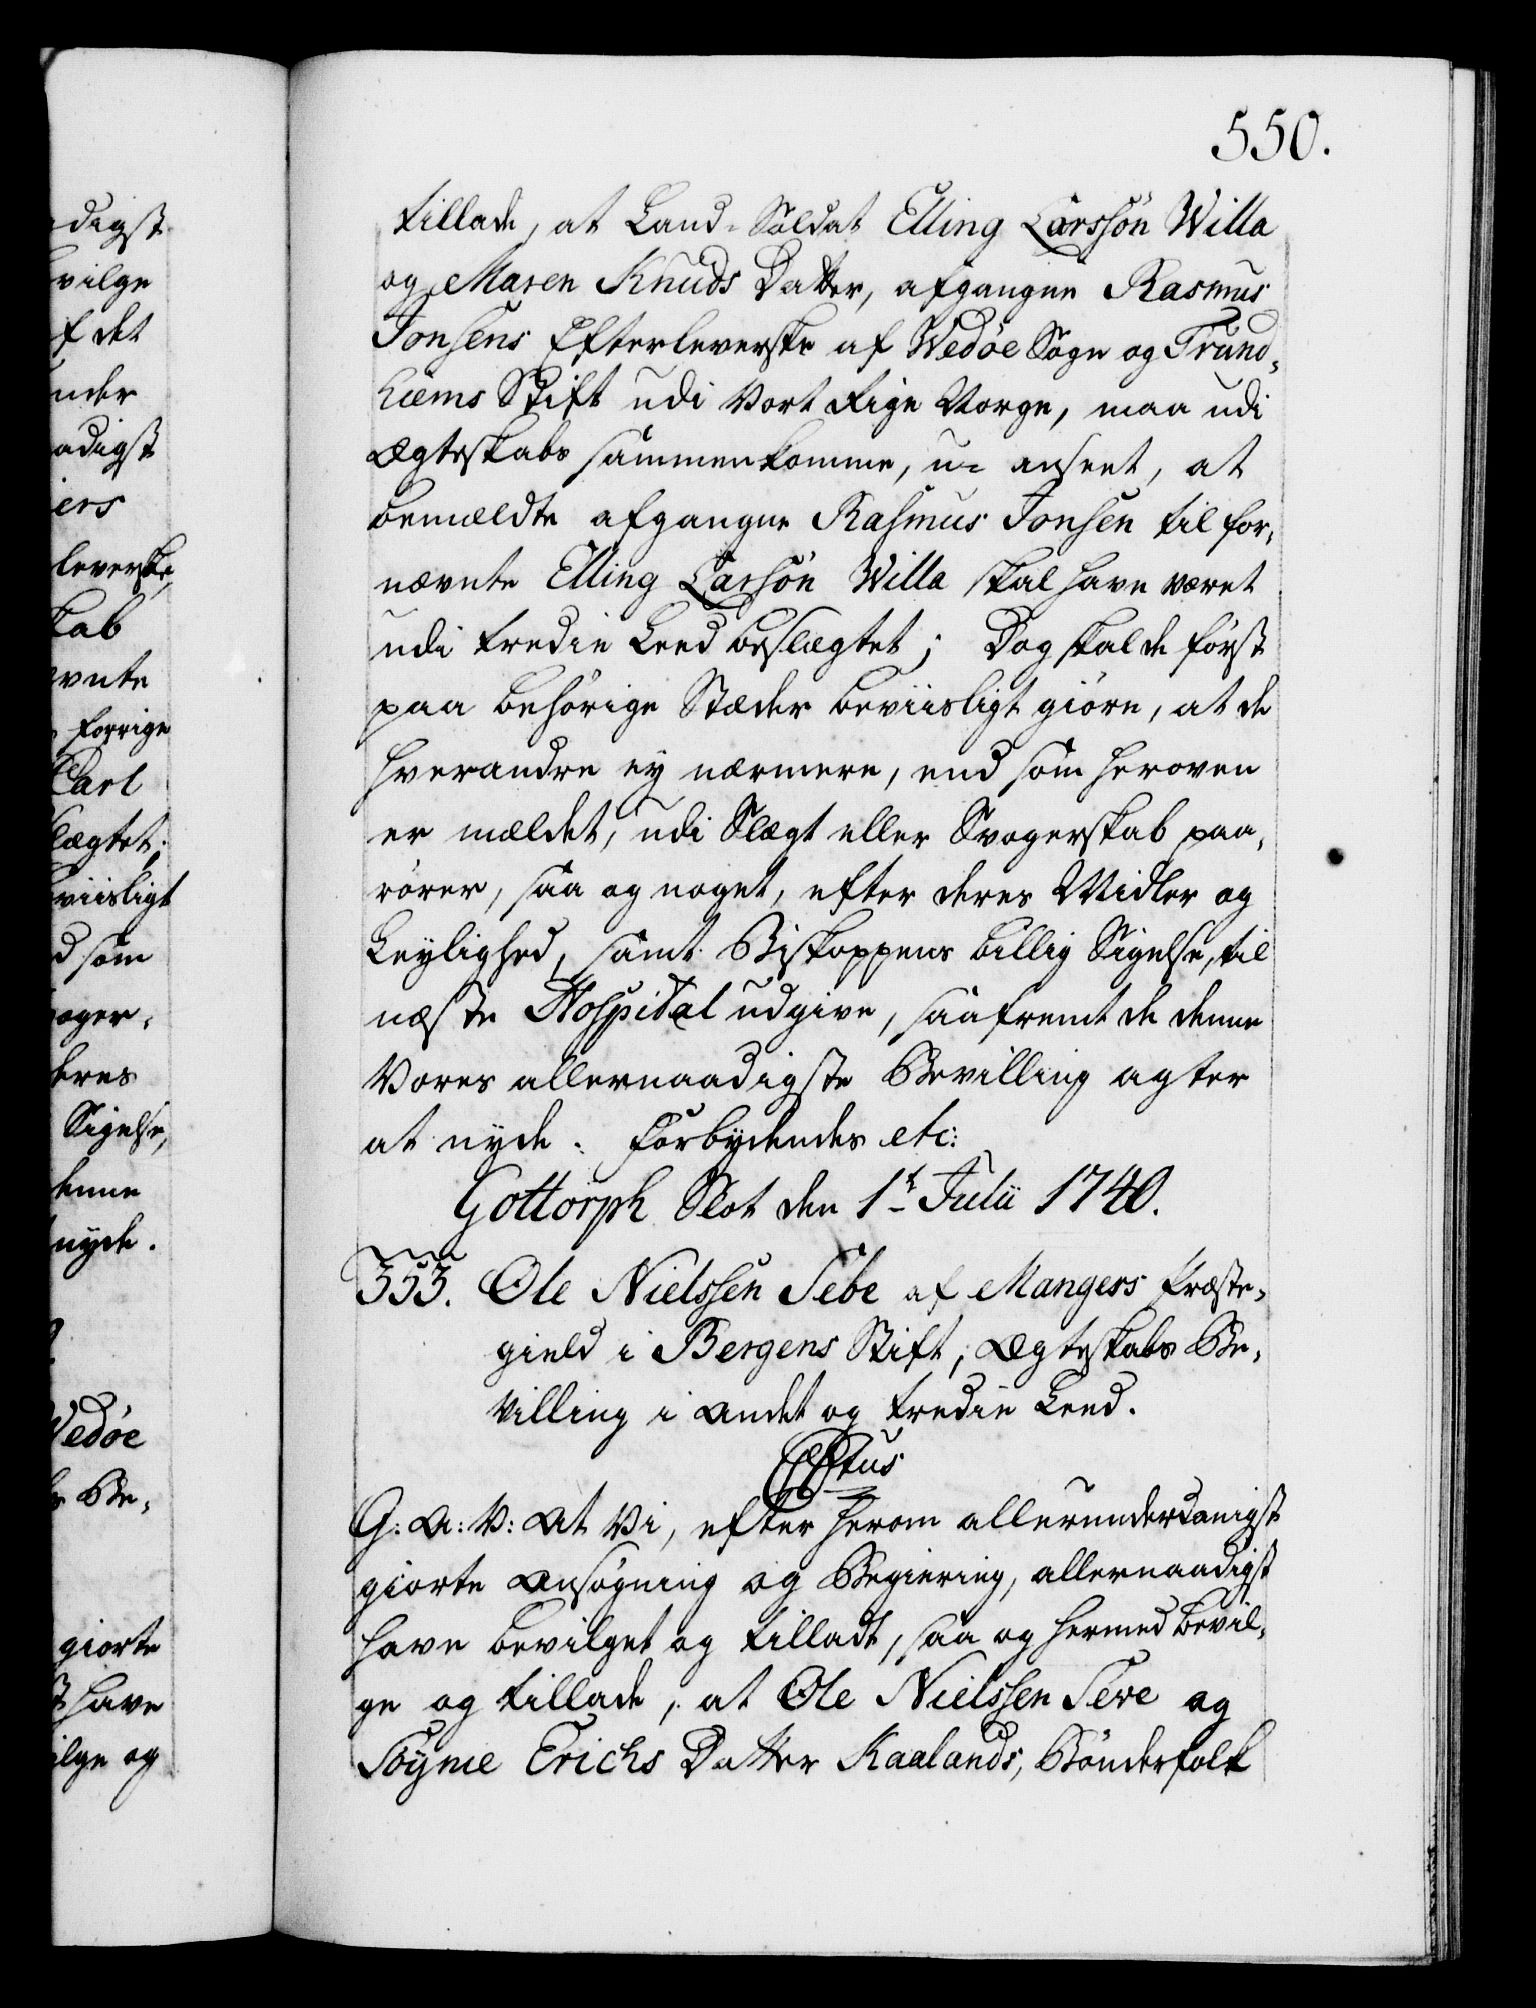 550.
tillade, at Land-Soldat Elling Larssøn Willa
og Maren Knuds Datter, afgangne Rasmus
Jonsens Efterleverske af Wedøe Sogn og Trund-
hiems Stift udi Vort Rige Norge, maa udi
Ægteskabs sammenkomme, u- anseet, at
bemældte afgangne Rasmus Jonsen til for-
nævnte Elling Larsøn Willa skal have været
udi tredie Leed beslægtet; Dog skal de først
paa behørige Stæder beviisligt giøre, at de
hverandre ey nærmere, end som heroven
er mældet, udi Slægt eller Svogerskab paa-
rører, saa og noget, efter deres Midler og
Leylighed, samt Biskoppens billig Sigelse, til
næste Hospital udgive, saafremt de denne
Vores allernaadigste Bevilling agter
at nyde. Forbydendes etc:
Gottorph Slot den 1t Julii 1740.
353. Ole Nielssen Sebe af Mangers Præste-
gield i Bergens Stift, Ægteskabs Be-
villing i andet og tredie Leed.
C6tus
G: A: V: At Vi, efter herom allerunderdanigst
giorte Ansøgning og Begiering, allernaadigst
have bevilget og tilladt, saa og hermed bevil-
ge og tillade, at Ole Nielssen Seve og
Søyne Erichs Datter Kaalands, Bønderfolk
digst
vilge
f det
under
adigst
iers
leverske,
kab
vnte
forrige
Carl
lægtet;
viisligt
d som
oger-
deres
Sigelse,
denne
nyde.
Wedøe
Be-
giorte
have
ilge og